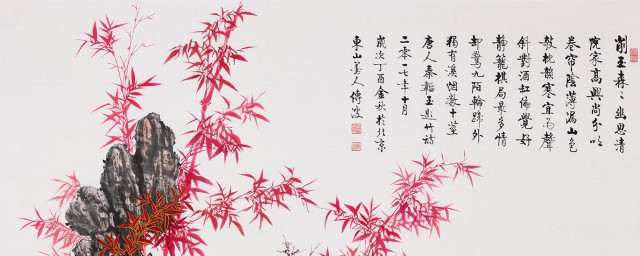 削玉森森幽思清
院家高興尚分明
卷帘陰薄漏山色
敧枕韻寒宜雨聲
斜對酒缸偏覺好
靜籠棋局最多情
却驚九陌輪蹄外
獨有溪烟數十莖
唐人秦韜玉題竹詩
二零一七年十月
歲次丁酉金秋於北京
東山